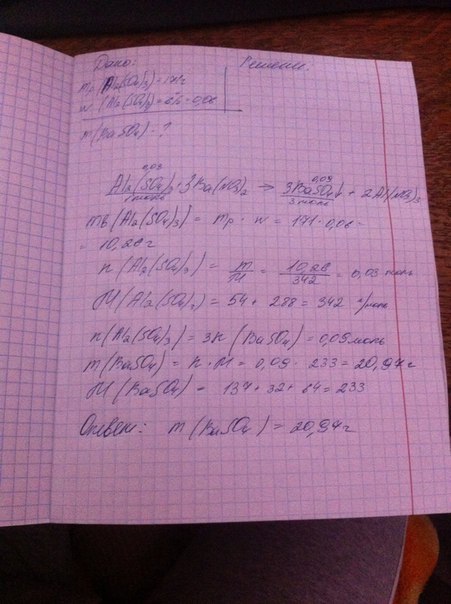 Дано: Решение:
mр (Al₂(SO₄)₃) = 171г
w (Al₂(SO₄)₃) = 6% = 0,06
m(BaSO₄) - ?
0,03 0,09
Al₂(SO₄)₃ + 3Ba(NO₃)₂ → 3BaSO₄↓ + 2Al(NO₃)₃
1 моль 3 моль
mв (Al₂(SO₄)₃) = mр · w = 171 · 0,06 =
= 10,26 г
n (Al₂(SO₄)₃) = m/M = 10,26/342 = 0,03 моль
M (Al₂(SO₄)₃) = 54 + 288 = 342 г/моль
n (Al₂(SO₄)₃) = 3n (BaSO₄) = 0,09 моль
m (BaSO₄) = n · M = 0,09 · 233 = 20,97 г
M (BaSO₄) = 137 + 32 + 64 = 233
Ответ: m (BaSO₄) = 20,97 г